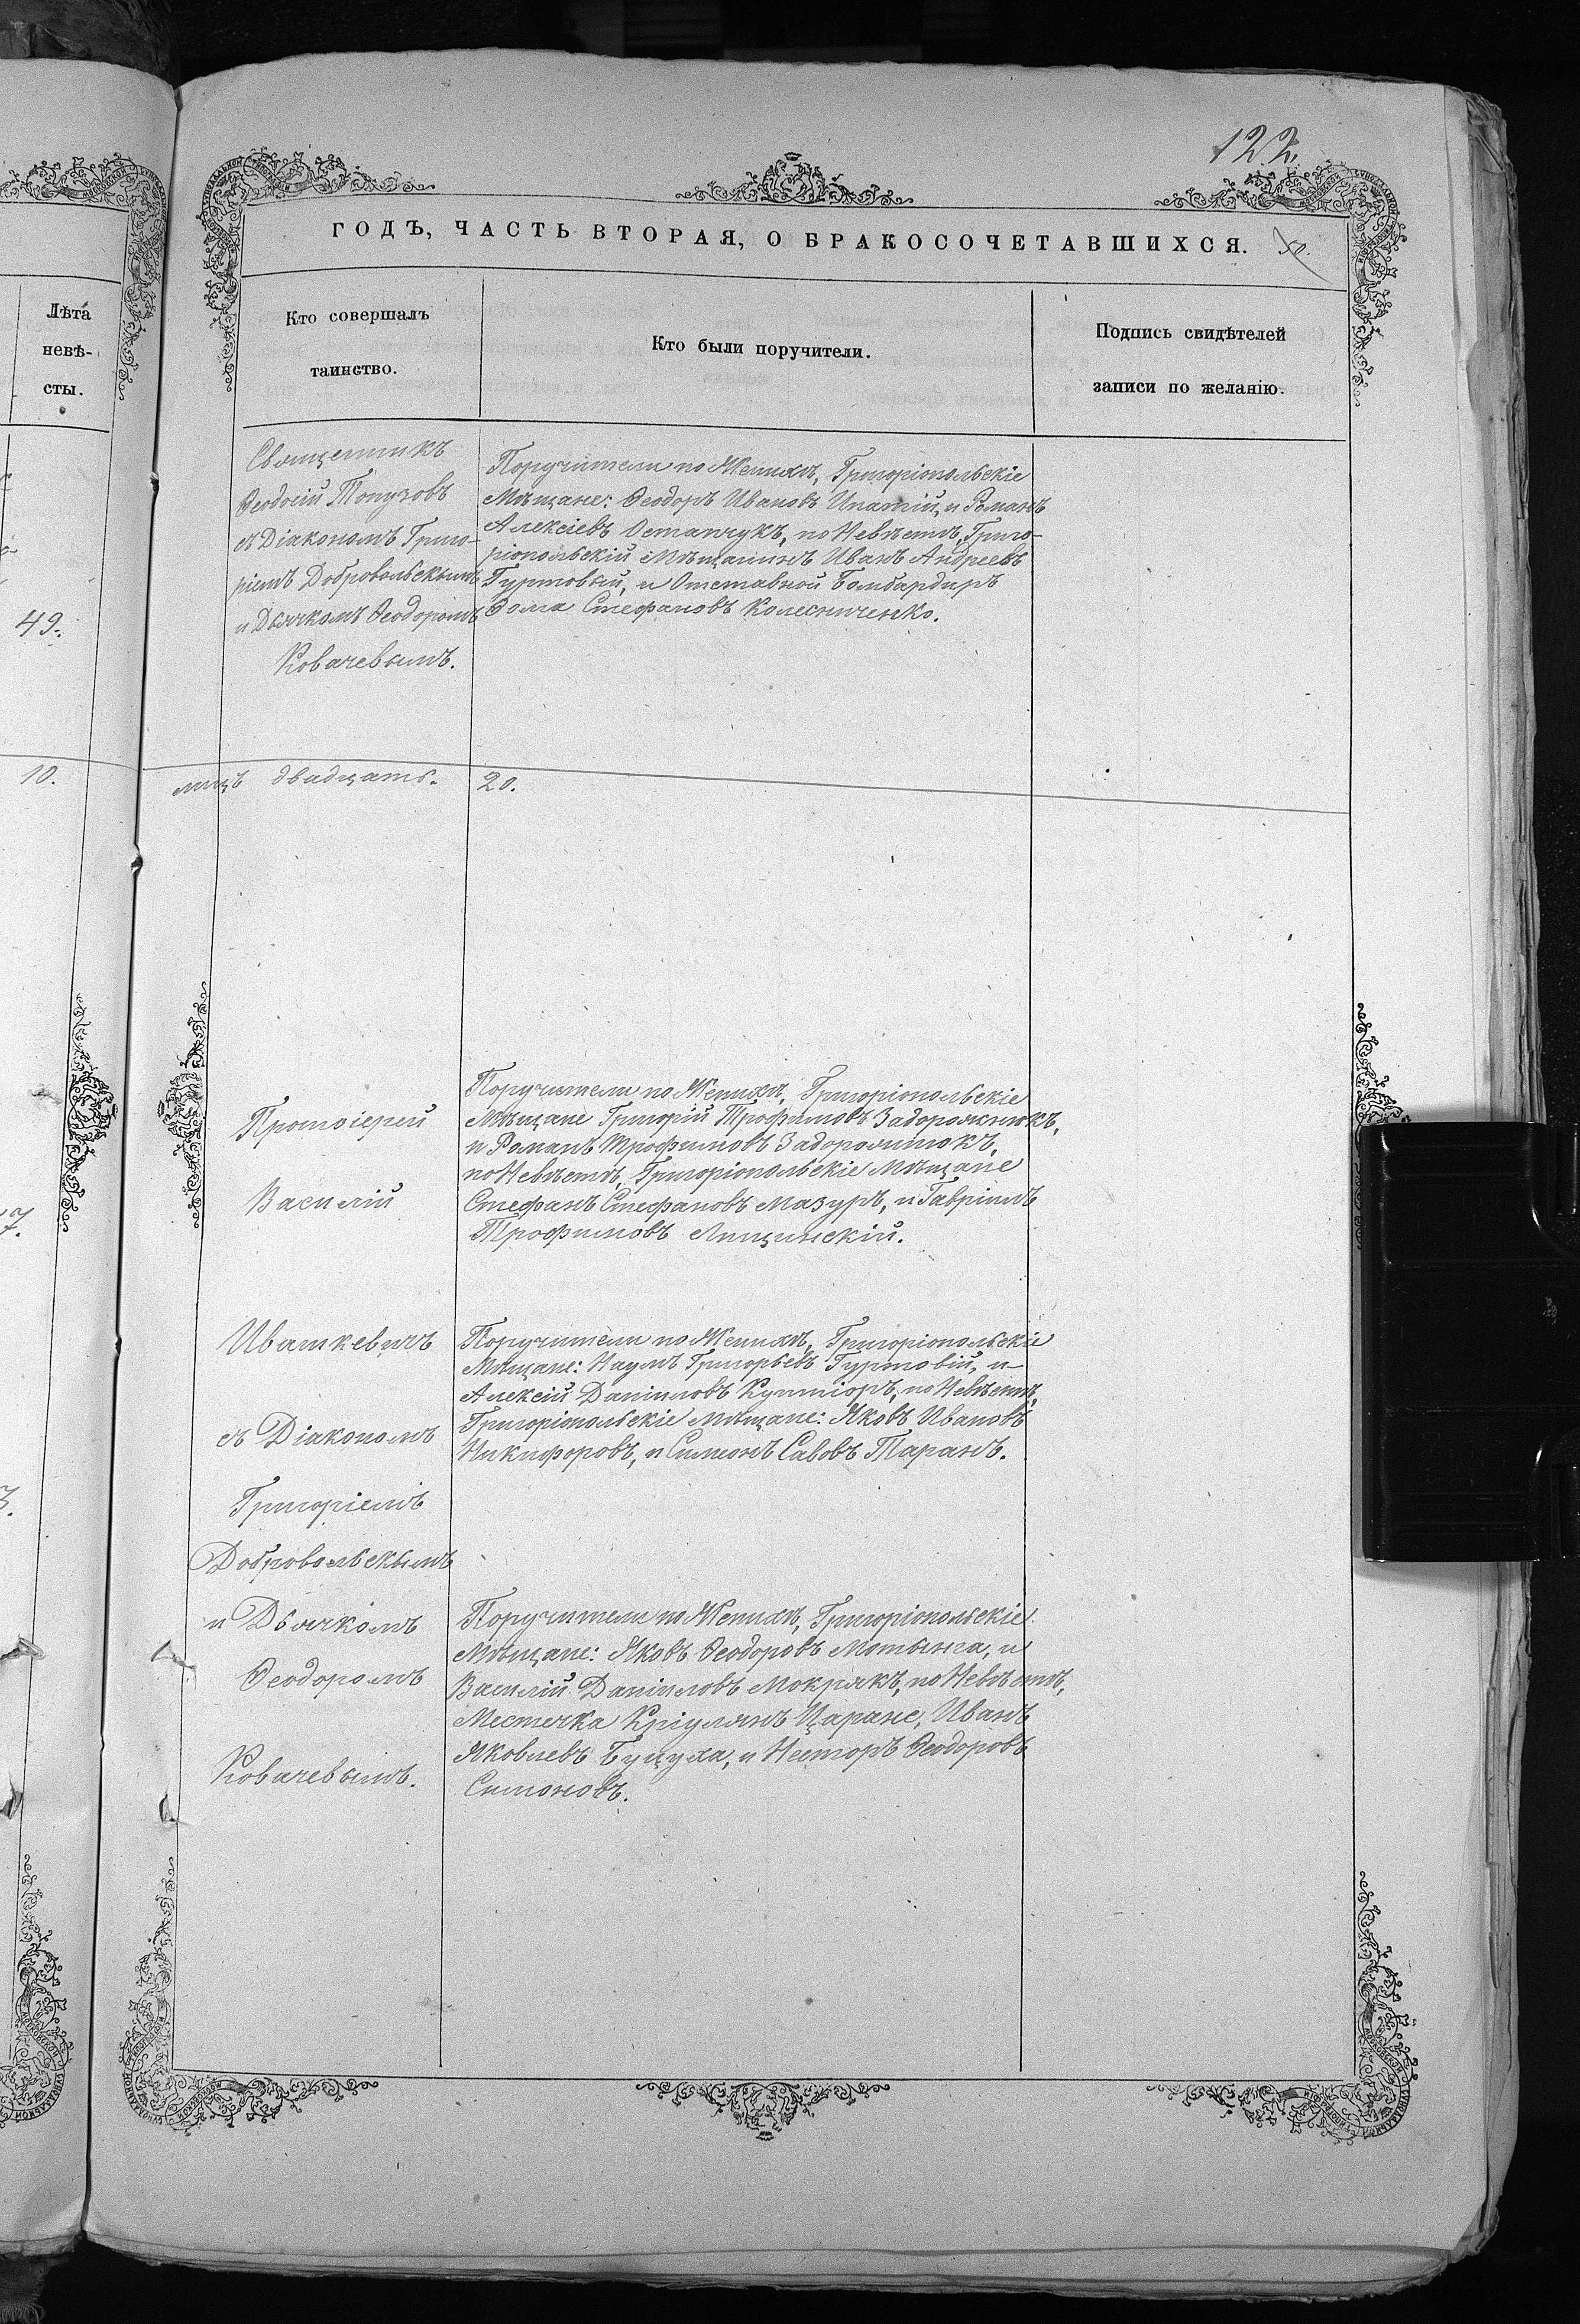 122.
ГОДЪ, ЧАСТЬ ВТОРАЯ, О БРАКОСОЧЕТАВШИХСЯ.
Лѣта
невѣ-
сты.
49.
10.
7.
Кто совершалъ
таинство.
Кто были поручители.
Подпись свидѣтелей
записи по желанію.
Священникъ
Ѳеодосій Топузовъ
съ Діакономъ Григо-
ріемъ Добровольскымъ
и Дьячкомъ Ѳеодоромъ
Ковачевымъ.
Поручители по Женихѣ, Григоріопольскіе
Мѣщане: Ѳеодоръ Ивановъ Ипатій, и Романъ
Алексіевъ Остапчукъ, по Невѣстѣ, Григо-
ріопольскій Мѣщанинъ Иванъ Андреевъ
Гуртовый, и Отставной Бомбардиръ
Ѳома Стефановъ Колесниченко.
лицъ двадцать. 20.
Протоіерей
Василій
Ивашкевичъ
съ Діакономъ
Григоріемъ
Добровольскымъ
и Дьячкомъ
Ѳеодоромъ
Ковачевымъ.
Поручители по Женихѣ, Григоріопольскіе
Мѣщане Григорій Трофимовъ Задорожнюкъ,
и Романъ Трофимовъ Задорожнюкъ,
по Невѣстѣ, Григоріопольскіе Мѣщане
Стефанъ Стефановъ Мазуръ, и Гавріилъ
Трофимовъ Лищинскій.
Поручители по Женихѣ, Григоріопольскіе
Мѣщане: Наумъ Григорьевъ Гуртовій, и
Алексій Даніиловъ по Невѣстѣ,
Григоріопольскіе Мѣщане: Яковъ Ивановъ
Никифоровъ, и Симеонъ Савовъ Таранъ.
Поручители по Женихѣ, Григоріопольскіе
Мѣщане: Яковъ Ѳеодоровъ Мотынга, и
Василій Даніиловъ Мокрякъ, по Невѣстѣ,
Местечка Кріулянъ Царане, Иванъ
Яковлевъ Буцула, и Несторъ Ѳеодоровъ
Симоновъ.